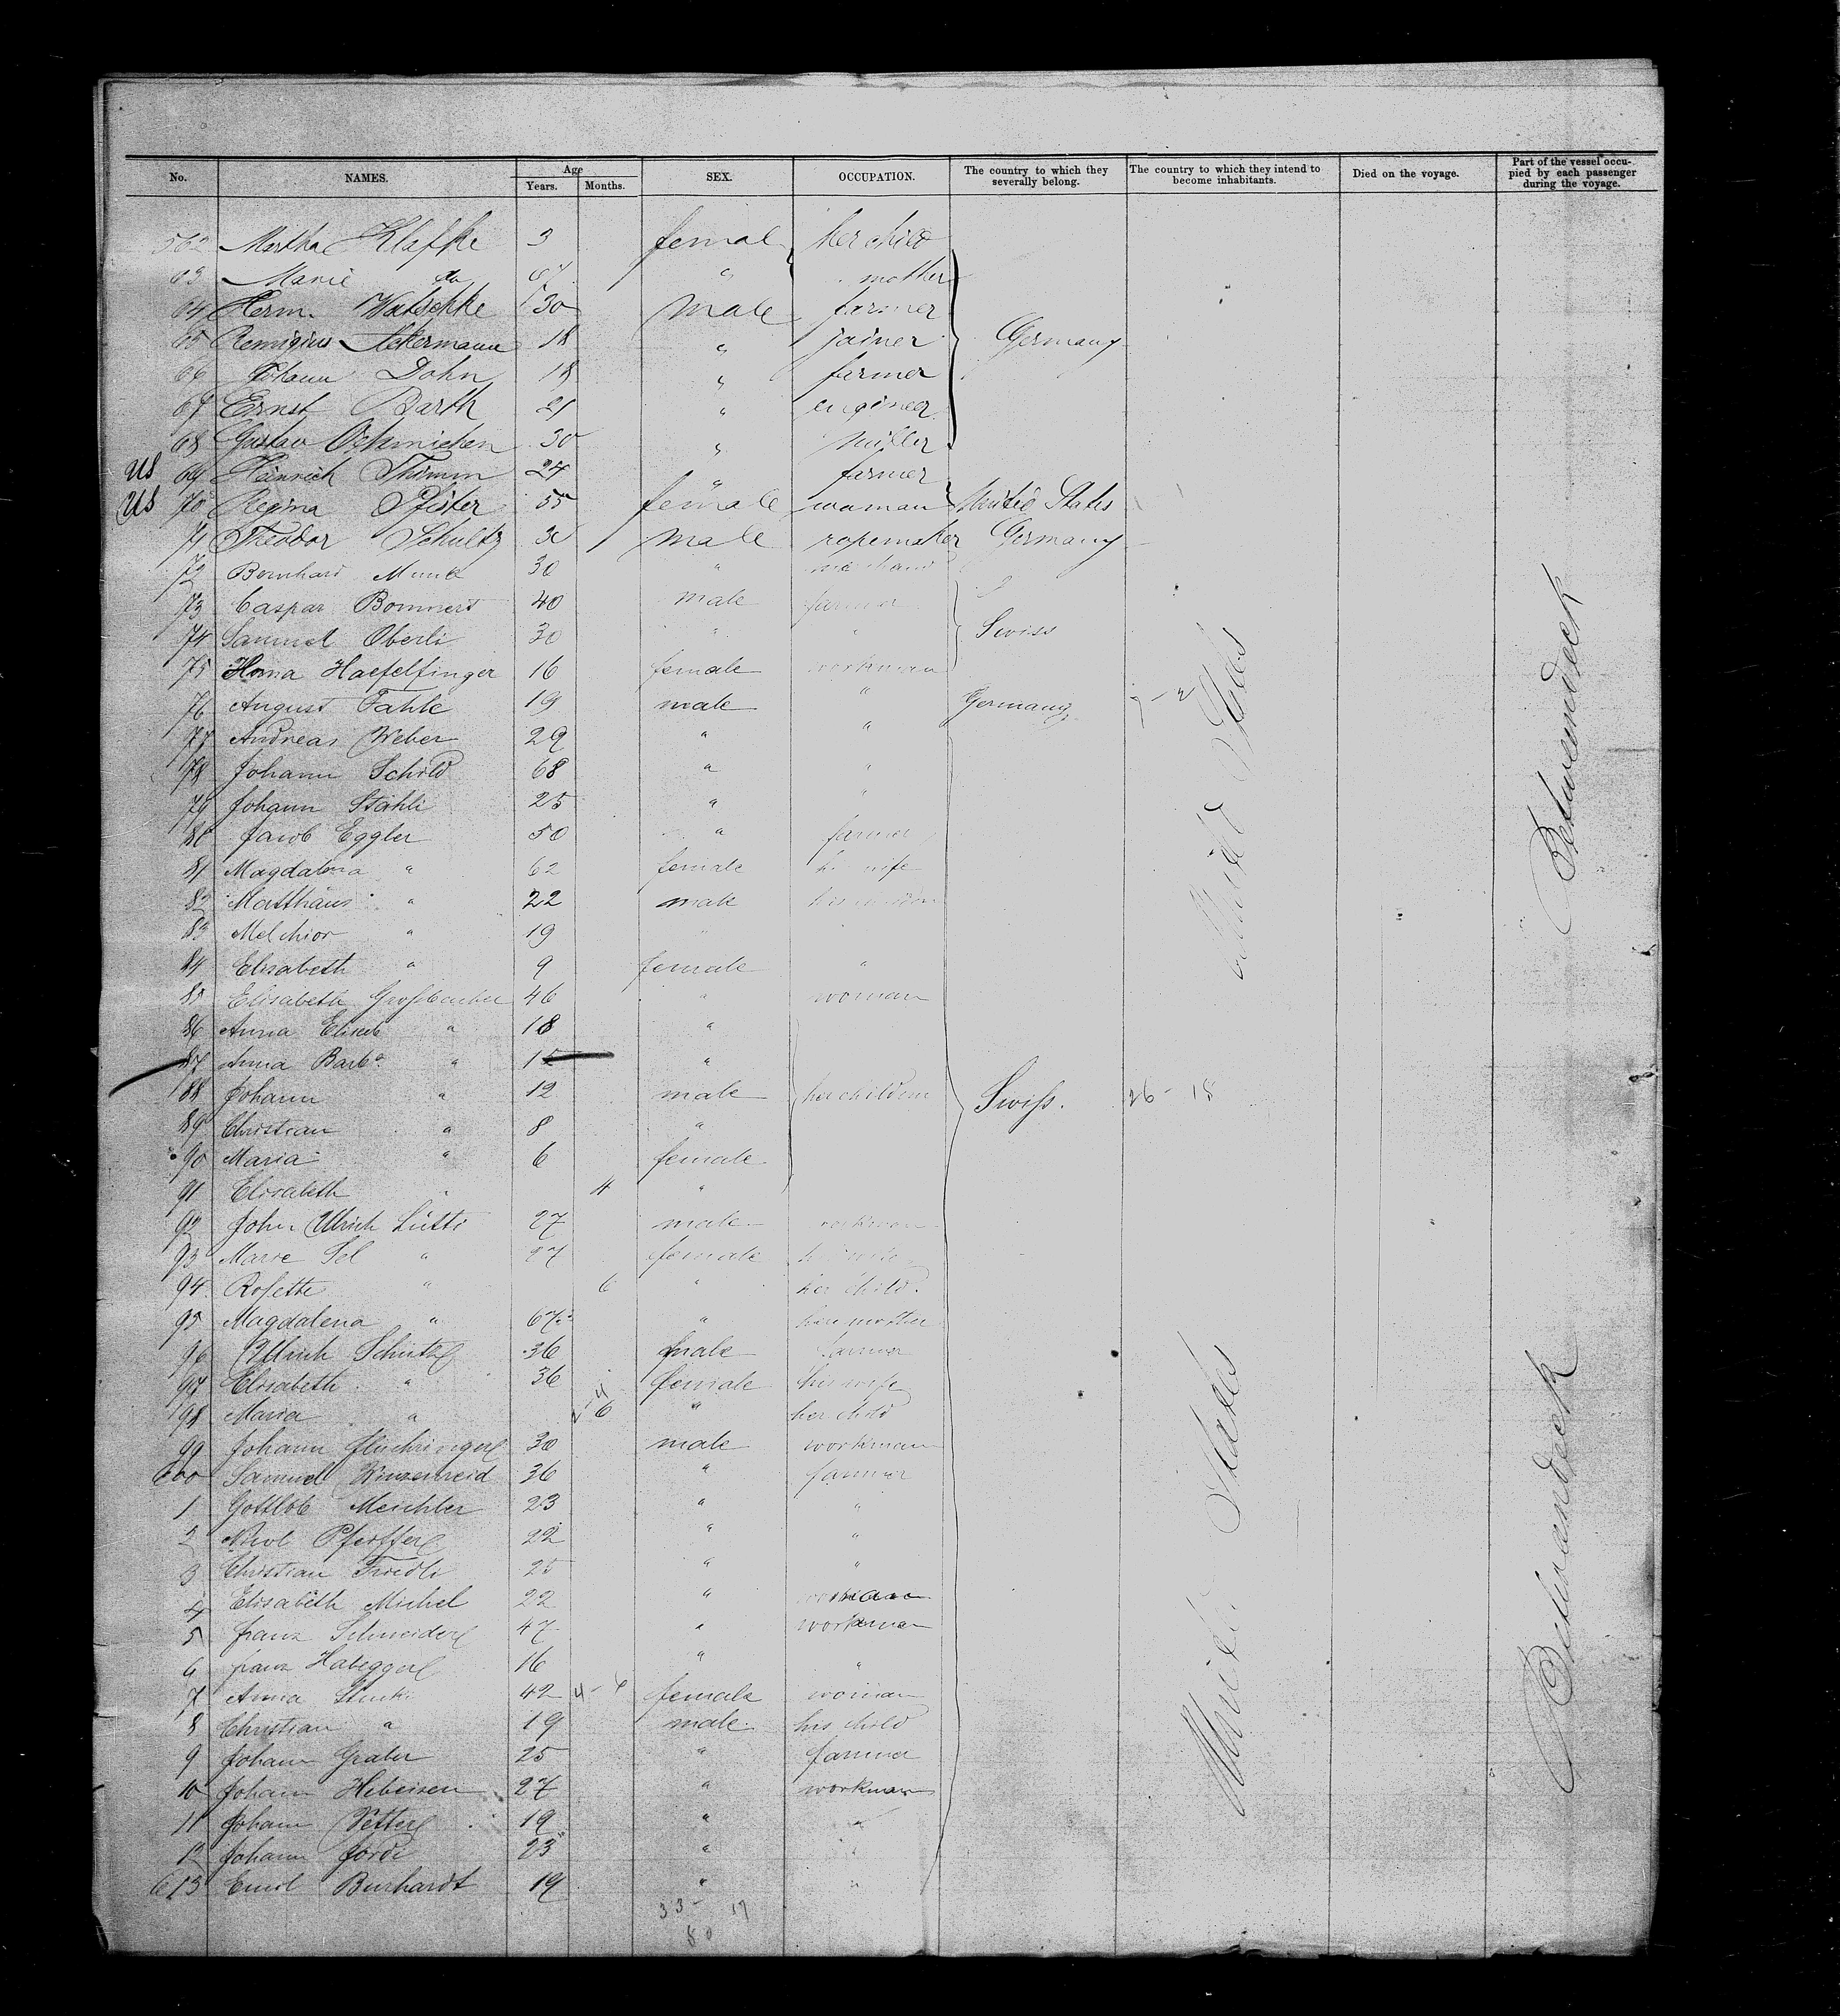 No. NAMES. Age Years. Months. SEX. OCCUPATION. The country to which they severally belong. The country to which they intend to become inhabitants. Died on the voyage. Part of the vessel occupied by each passenger during the voyage.
562 Martha Klaffke 3 female her child
63 Marie do mother
64 Herm. Watschke 30 male farmer
65 Remigius Ackermann 18 " joiner Germany
66 Johann Dohn 18 " farmer
67 Ernst Barth 21 " engineer
68 Gustav Oehmichen 30 " miller
US 69 Heinrich Thimm 24 " farmer
US 70 Regina Pfister 55 female woman United States
71 Theodor Schultz 30 male ropemaker Germany
72 Bernhard 30 "
73 Caspar Bommert 40 male farmer
74 Samuel Oberli 30 " " Swiss
75 Haefelfinger 16 female workman
76 August Fahle 19 male " Germany
77 Andreas Weber 29 " "
78 Johann Schild 68 " "
79 Johann Stähli 25 " "
80 Jacob Eggler 50 " farmer
81 Magdalena " 62 female his wife
82 Matthäus " 22 male his children
83 Melchior " 19 "
84 Elisabeth " 9 female "
85 Elisabeth 46 " woman
86 Anna Elisab " 18 "
87 Anna Barba " 15 "
88 Johann " 12 male her children Swiss. 26 - 18
89 Christian " 8 "
90 Maria " 6 female
91 Elisabeth " 4 "
92 John Ulrich Lüthi 27 male workman
93 Marie " 27 female his wife
94 Rosette " 6 " her child.
95 Magdalena " 67 " her mother
96 Ulrich Schütz 36 male farmer
97 Elisabeth " 36 female his wife
98 Maria " 6 " her child
99 Johann 30 male workman
600 Samuel Winzenreid 36 " farmer
1 Gottlob Meichler 23 " "
2 Pfeiffer 22 " "
3 Christian Friedli 25 " "
4 Elisabeth Michel 22 "
5 Franz Schneider 47 " workman
6 Franz Habegger 16 " "
7 Anna Stucki 42 female woman
8 Christian " 19 male his child
9 Johann Graber 25 " farmer
10 Johann Hebeisen 27 " workman
11 Johann Vetter 19 " "
12 Johann Jordi 23 " "
613 Emil Burhardt 19 " "
33 - 17
50
United States
United States
Betweendeck
Betweendeck